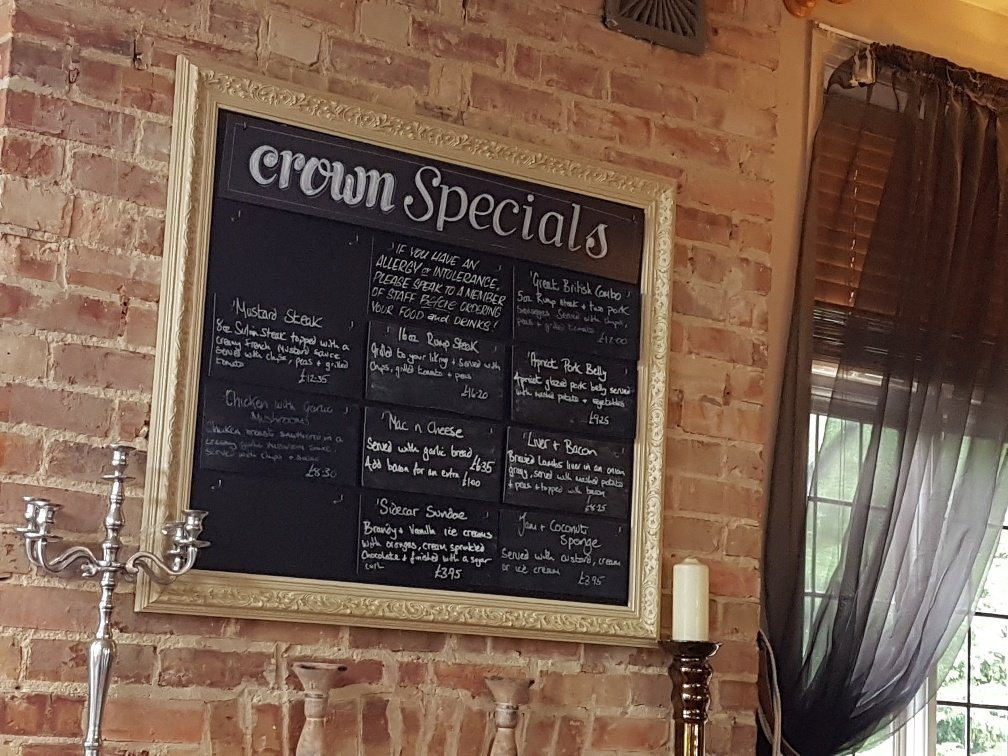 crown Specials
'Mustard Steak'
8oz Sirloin Steak topped with a
creamy French Mustard sauce
Served with chips, peas + grilled
tomato
£12.35
Chicken with Garlic
Mushrooms
Chicken breast smothered in a
creamy garlic mushroom sauce
Served with Chips + Salad
£8.30
IF YOU HAVE AN
ALLERGY or INTOLERANCE,
PLEASE SPEAK TO A MEMBER
OF STAFF BEFORE ORDERING
YOUR FOOD and DRINKS!
16oz Rump Steak
Grilled to your liking + served with
Chips, grilled tomato + peas
£16.20
'Mac n Cheese
Served with garlic bread £6.35
Add bacon for an extra £1.00
'Sidecar Sundae
Brandy + Vanilla ice creams
with oranges, cream sprinkled
Chocolate + finished with a sugar
curl £3.95
'Great British Combo'
5oz Rump steak + two pork
Sausages Served with chips,
peas + grilled tomato
£12.00
'Apricot Pork Belly
Apricot glazed pork belly served
with mashed potato + vegetables
£9.25
'Liver + Bacon
Braised Lambs liver in an onion
gravy, served with mashed potato
+ peas + topped with bacon
£8.25
Jam + Coconut
Sponge
Served with custard, cream
or ice cream £3.95